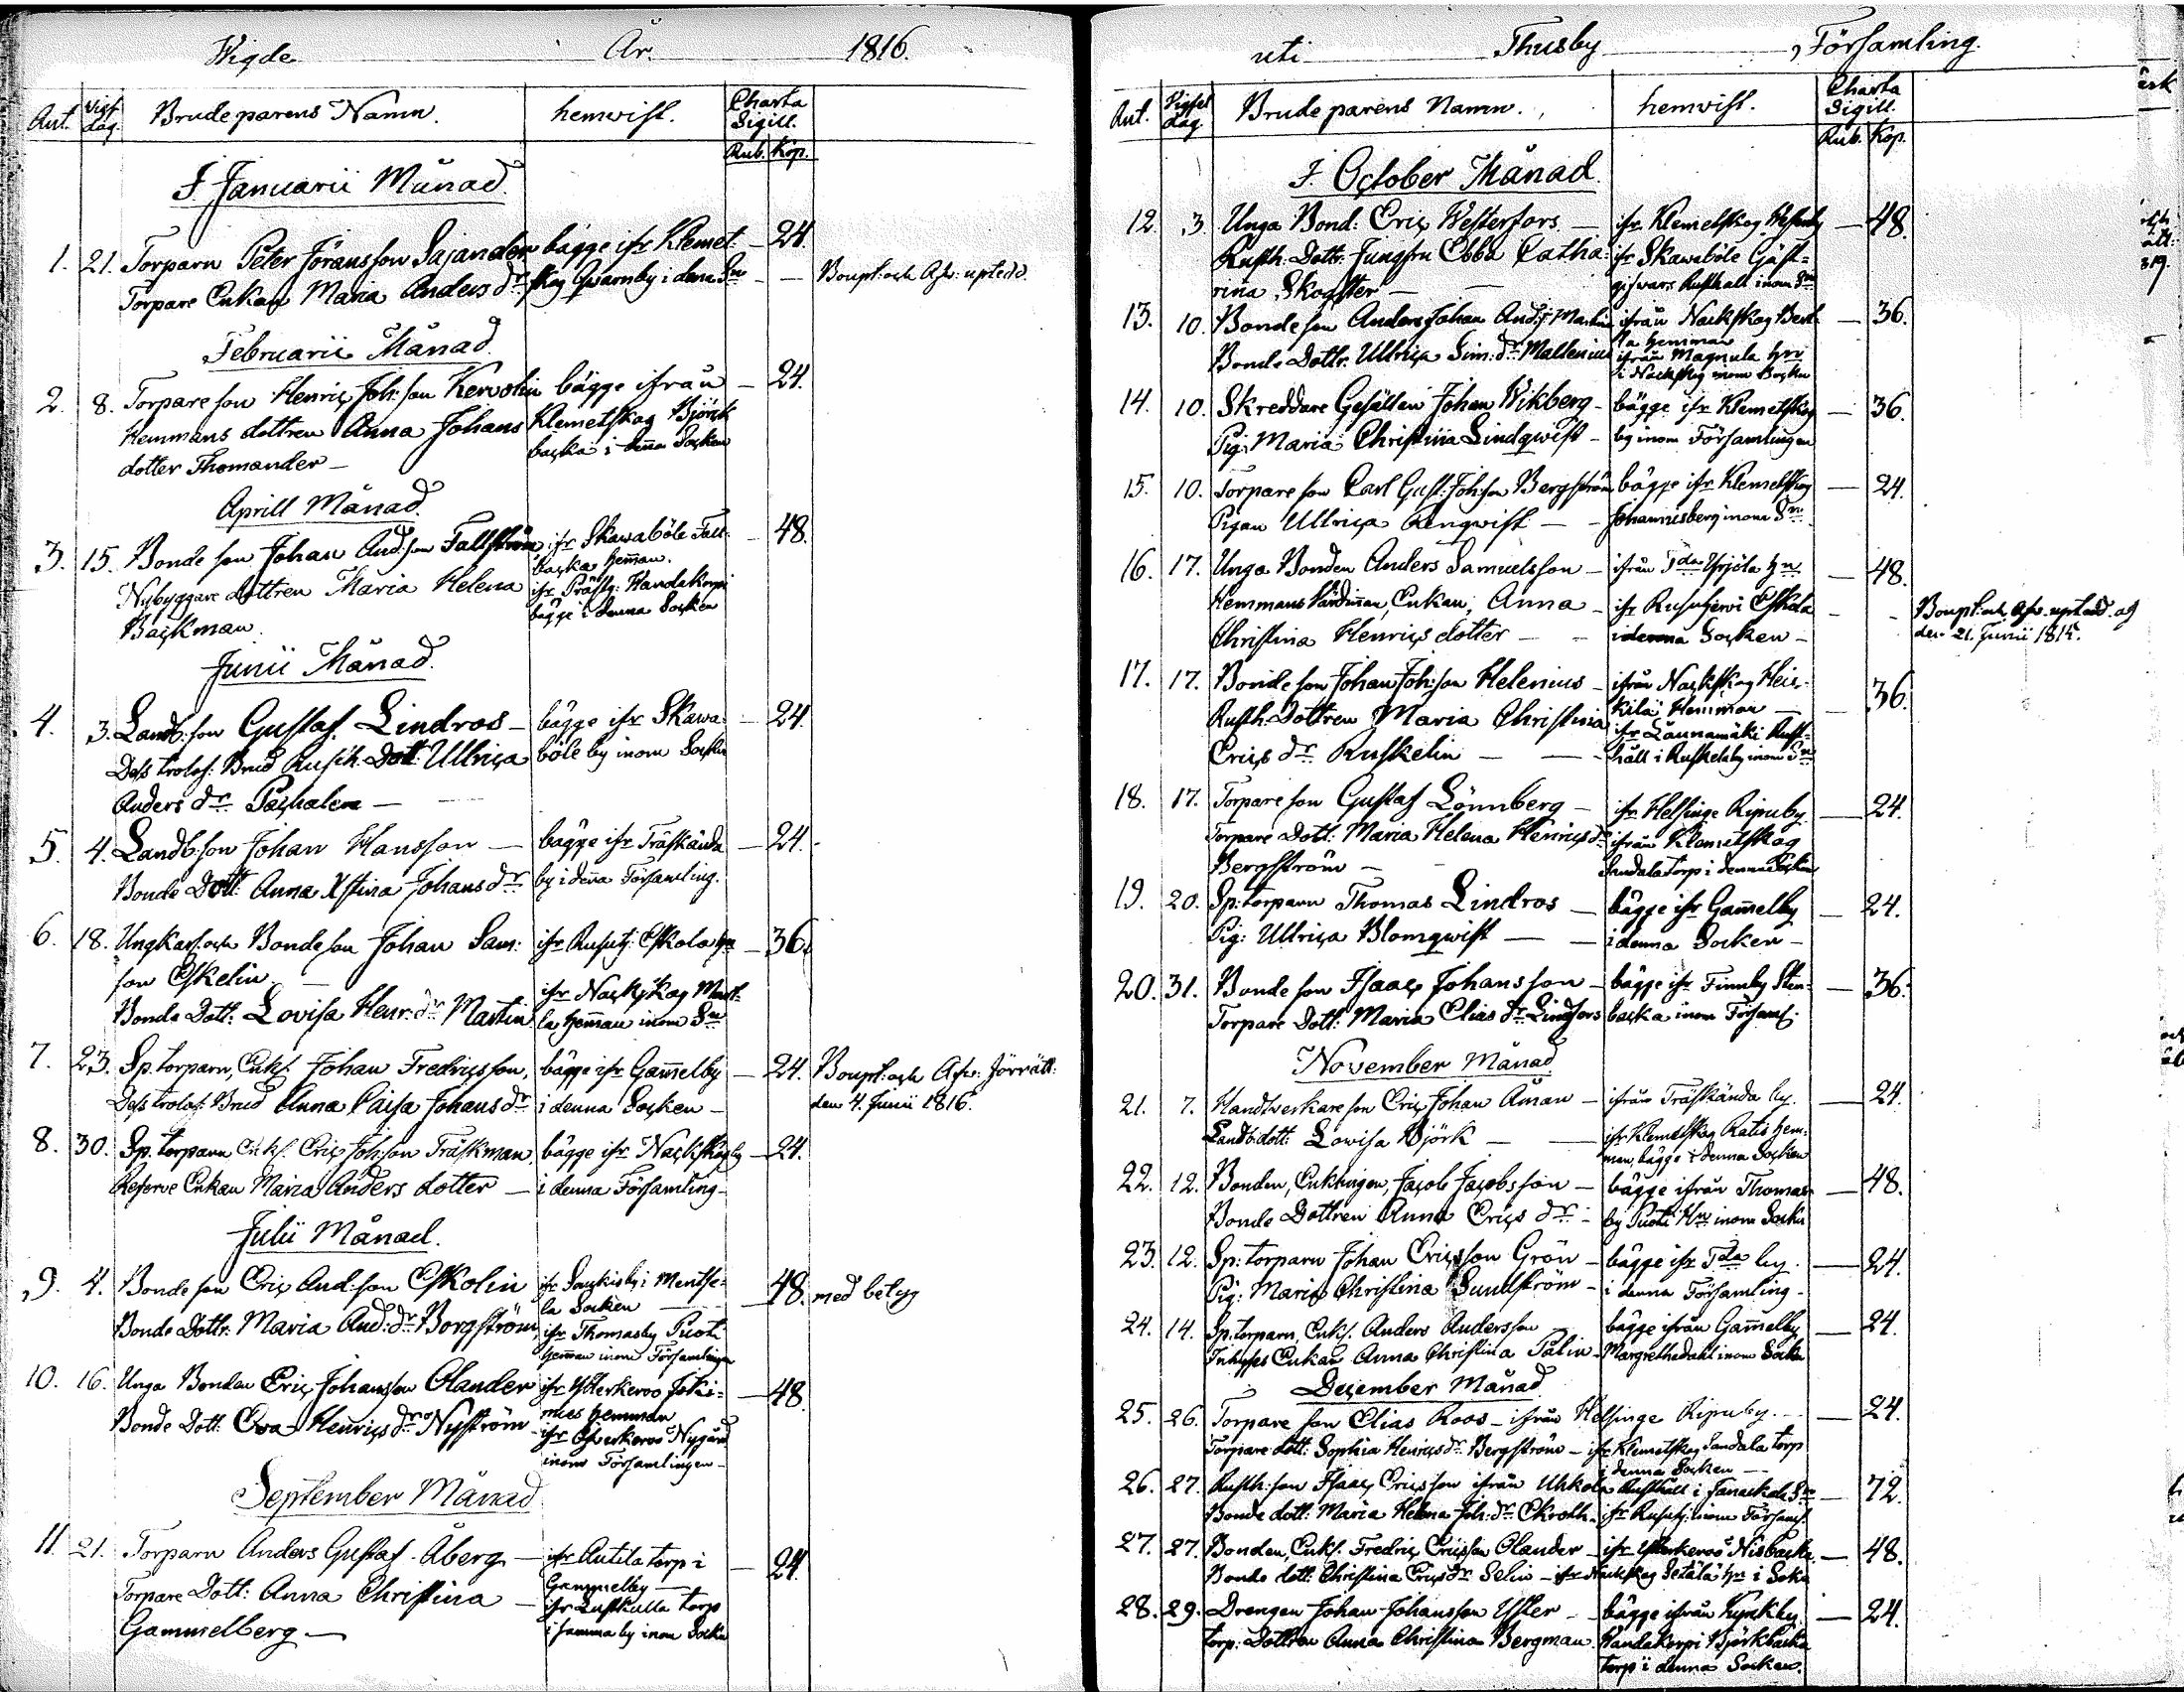 Wigde År. 1816.
Ant. Vigs. dag. Brudeparens Namn. hemvist. Charta Sigill. Rub. Kop.
I Januarii Månad.
1. 21. Torparn Peter Jöransson Sajander bägge ifr Klemet- 24.
Torpare Enkan Maria Anders dr skog Qwarnby i denna Sn Boupt: och Afw: uptedd.
Februarii Månad.
2. 8. Torpare son Henric Joh: son Kervolin bägge ifrån 24.
Hemmans dottren Anna Johans Klemetskog Björk
dotter Thomander backa i denna Socken
Aprill Månad.
3. 15. Bonde son Johan And: son Fallström ifr Skawaböle Fall- 48.
backa hemman.
Nybyggare dottren Maria Helena ifr Prästg: Handakorpi
Backman. bägge i denna Socken
Junii Månad.
4. 3. Landb: son Gustaf Lindros bägge ifr Skawa- 24.
Dess trolof: Brud Rusth: Dott: Ullrica böle by inom Socken
Anders dr
5. 4. Landb: son Johan Hansson bägge ifr Träskända 24.
Bonde Dott: Anna Xstina Johans dr by i denna Församling.
6. 18. Ungkarl och Bonde son Johan Sam: ifr Rusutj: Eskola hn 36.
son Eskelin
ifr Nackskog Mart-
Bonde Dott: Lovisa Henr: dr Martin la hemman inom Sn
7. 23. Sp. torparn, Enkl. Johan Fredricsson, bägge ifr Gammelby 24. Boupt: och Afw: förrätt:
Dess trolof: Brud Anna Caisa Johans dr i denna Socken den 4. Junii 1816.
8. 30. Sp. torparn Enkl. Eric Joh: son Träskman, bägge ifr Nackskog by 24.
Reserve Enkan Maria Anders dotter i denna Församling
Julii Månad.
9. 4. Bonde son Eric And: son Eskolin ifr i Mentse- 48. med betyg
la Socken
Bonde Dottr: Maria And: dr Borgström, ifr Thomasby Puoti
hemman inom Församlingen
10. 16. Unga Bonden Eric Johansson Olander ifr Ytterkervo Joki- 48.
mies hemman
Bonde Dott: Ewa Henrics dr Nyström ifr Nygård
inom Församlingen
September Månad
11. 21. Torparn Anders Gustaf Åberg ifr Antila torp i 24.
Gammelby
Torpare Dott: Anna Christina ifr torp
Gammelberg i samma by inom Socken
uti Thusby Församling.
Ant. Vigsel dag. Brudeparens Namn. hemvist. Charta Sigill. Rub. Kop.
I October Månad.
12. 3. Unga Bond: Eric Westerfors ifr Klemetskog 48.
Rusth: Dottr: Jungfru Ebba Catha- ifr Skawaböle Gäst-
rina Skogster gifwars Rusthall inom Sn
13. 10. Bonde son Anders Johan And: s: Martin ifrån Nackskog 36.
la hemman
Bonde Dottr. Ullrica Sim: dr Mallenius ifrån Magnula hn
i Nackskog inom Socken
14. 10. Skreddare Gesällen Johan Wikberg bägge ifr Klemetskog 36.
Pig: Maria Christina Lindqwist by inom Församlingen
15. 10. Torpare son Carl Gust: Joh: son Bergström bägge ifr Klemetskog 24.
Pigan Ullrica Renqwist Johannisberg inom Sn
16. 17. Unga Bonden Anders Samuelsson ifrån Tda Yrjöla hn 48.
Hemmans Enkan, Anna ifr Rusutjerwi Eskola Boupt: och Afw. uptedd. af
Christina Henrics dotter i denna Socken den 21. Junii 1815.
17. 17. Bonde son Johan Joh: son Helenius ifrån Nackskog Heic- 36.
kilä Hemman
Rusth. Dottren Maria Christina ifr Launamäki Rust-
Erics dr Ruskelin håll i Ruskelaby inom Sn
18. 17. Torpare son Gustaf Lönnberg ifr Helsinge Ripuby. 24.
Torpare Dott: Maria Helena Henrics dr ifrån Klemetskog
Bergström Sandala torp i denna Socken
19. 20. Sp: torparn Thomas Lindros bägge ifr Gammelby 24.
Pig: Ullrica Blomqwist i denna Socken
20. 31. Bonde son Isaac Johansson bägge ifr Finnby Sten- 36.
Torpare Dott: Maria Elias dr Lindfors backa inom Församl.
November Månad
21. 7. Handtverkare son Eric Johan Åman ifrån Träskända by. 24.
Landb: dott: Lowisa Björk ifr Klemetskog Ratis hem-
man, bägge i denna Socken
22. 12. Bonden, Enklingen, Jacob Jacobsson bägge ifrån Thomas- 48.
Bonde Dottren Anna Erics dr by Puoti Hn inom Socken
23. 12. Sp: torparn Johan Ericsson Grön bägge ifr Tda by. 24.
Pig: Maria Christina Sundström i denna Församling
24. 14. Sp: torparn, Enkl. Anders Andersson bägge ifrån Gammelby 24.
Inhyses Enkan Anna Christina Pålin Margrethedahl inom Socken
December Månad
25. 26. Torpare son Elias Roos ifrån Helsinge Ripuby. 24.
Torpare dott: Sophia Henrics dr Bergström ifr Klemetskog Sandala torp
i denna Socken
26. 27. Rusth: son Isaac Ericsson ifrån Uhkola Rusthall i Janackala Sn 72.
Bonde dott: Maria Helena Joh: dr Ekroth ifr Rusutj: inom Församl.
27. 27. Bonden, Enkl. Fredric Ericsson Olander ifr Ytterkervo Nisbacka 48.
Bonde dott: Christina Erics dr Selin ifr Nackskog Setälä hn i Sokn
28. 29. Drengen Johan Johansson Uster bägge ifrån 24.
torp: Dottren Anna Christina Bergman Handakorpi Björkbacka
torp i denna Socken.